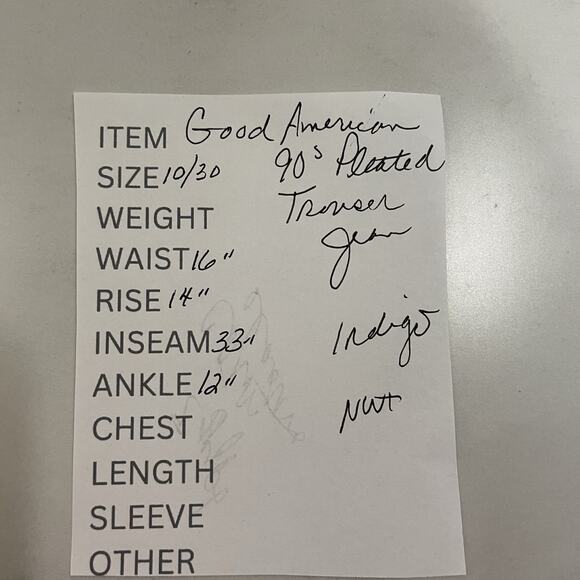 ITEM Good American
SIZE 10/30 90s Pleated
WEIGHT Trouser
WAIST 16" Jean
RISE 14"
INSEAM 33" Indigo
ANKLE 12"
CHEST NWT
LENGTH
SLEEVE
OTHER